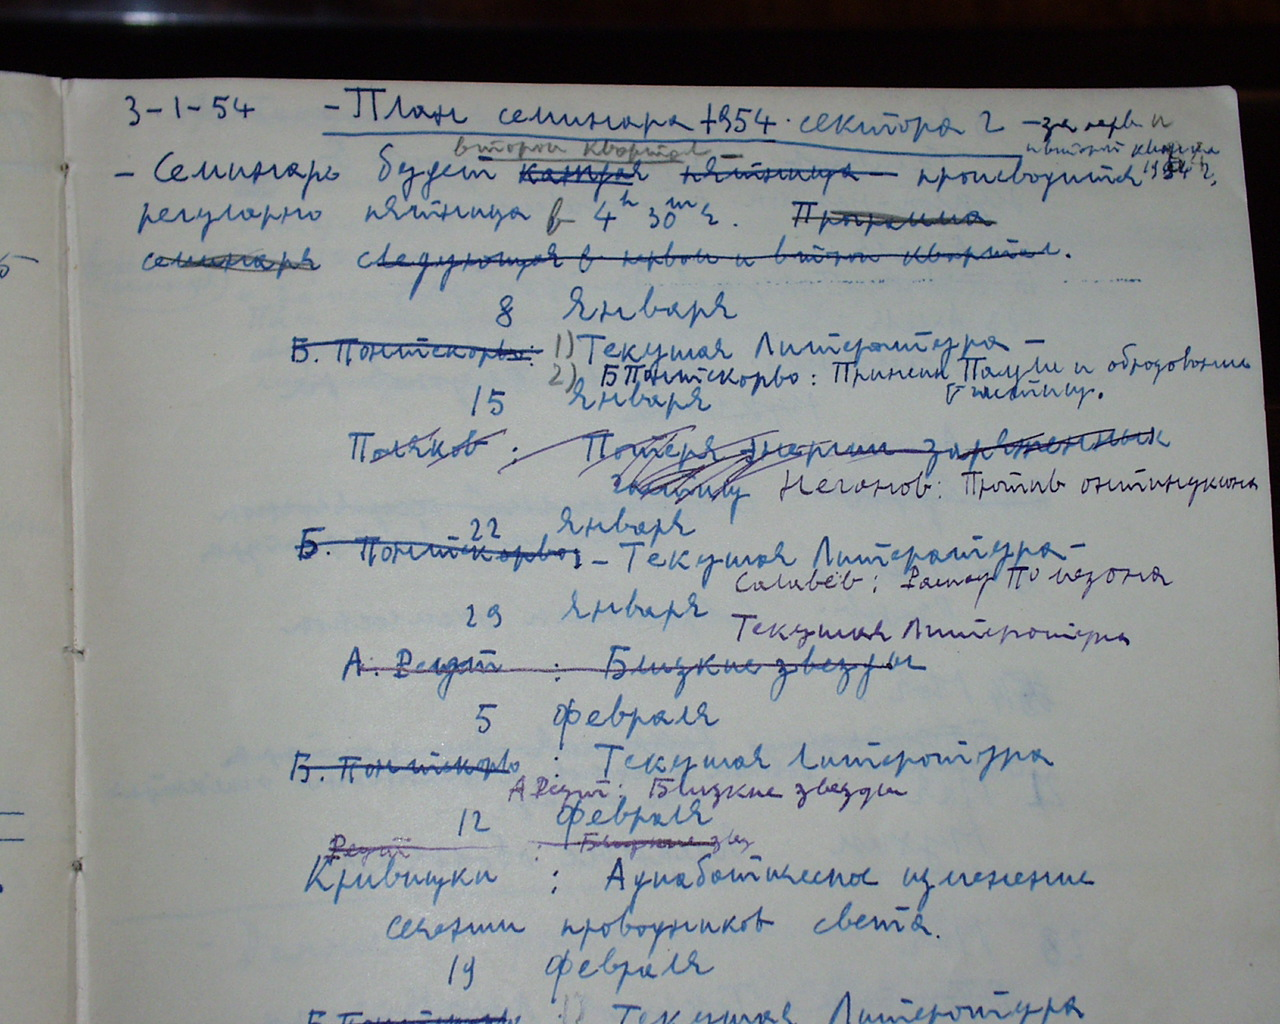 3-1-54 - План семинара 1954 · сектора 2 - за перв и
второй квартал
второй квартал 1954 г.
- Семинарь будет каждая пятница - происводится
регуларно пятница в 4h 30m г. Програма
семинаря следующая в первой и втором квартал.
8 Января
Б. Понтекорво: 1) Текушая Литература -
2) Б Понтекорво: Принсип Паули и образование
V частиц.
15 Января
Поляков : Потеря энергии заряженных
частиц Неганов: Против антинуклона
22 Января
Б. Понтекорво: - Текушая Литература -
Салавёв: Распад По мезона
29 Января
Текушая Литература
А. Реут : Близкие звезды
5 Февраля
Б. Понтекорво : Текушая Литература
А Реут: Близкие звезды
12 Февраля
Реут : Близкие звез
Кривицки : Адиабатическое изменение
сечении проводников света.
19 Февраля
Б. Понтекорво : 1) Текушая Литература